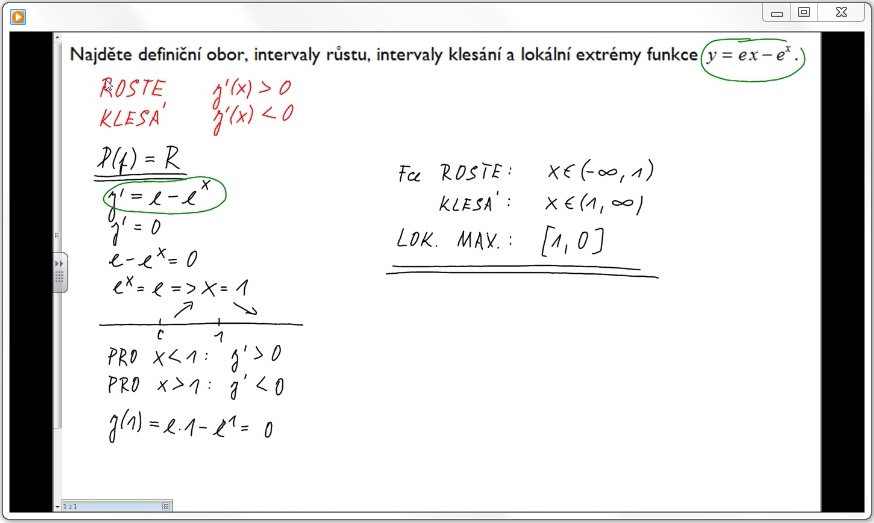 Najděte definiční obor, intervaly růstu, intervaly klesání a lokální extrémy funkce y = ex − eˣ.
ROSTE y'(x) > 0
KLESÁ y'(x) < 0
D(f) = R
y' = e − eˣ
y' = 0
e − eˣ = 0
eˣ = e => x = 1
0 1
PRO x < 1: y' > 0
PRO x > 1: y' < 0
y(1) = e.1 − e¹ = 0
Fce ROSTE: x ∈ (-∞, 1)
KLESÁ: x ∈ (1, ∞)
LOK. MAX.: [1, 0]
1 z 1